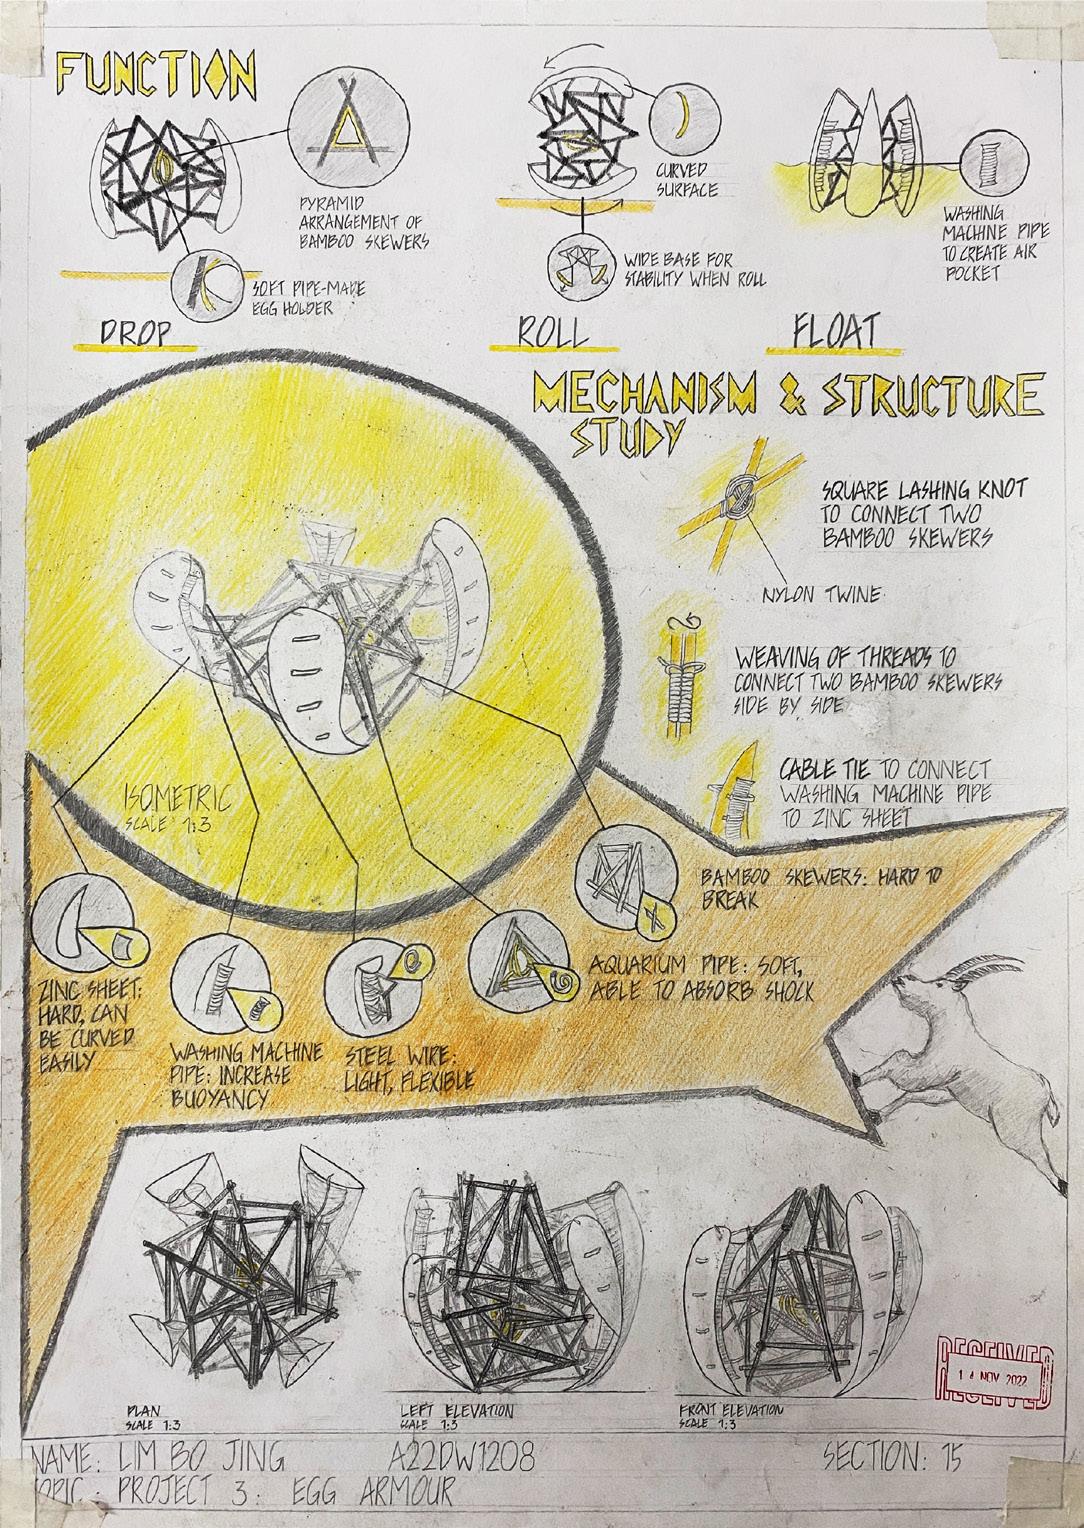 FUNCTION
PYRAMID
ARRANGEMENT OF
BAMBOO SKEWERS
SOFT PIPE-MADE
EGG HOLDER
DROP
CURVED
SURFACE
WIDE BASE FOR
STABILITY WHEN ROLL
ROLL
WASHING
MACHINE PIPE
TO CREATE AIR
POCKET
FLOAT
MECHANISM & STRUCTURE
STUDY
SQUARE LASHING KNOT
TO CONNECT TWO
BAMBOO SKEWERS
NYLON TWINE
WEAVING OF THREADS TO
CONNECT TWO BAMBOO SKEWERS
SIDE BY SIDE
CABLE TIE TO CONNECT
WASHING MACHINE PIPE
TO ZINC SHEET
ISOMETRIC
SCALE 1:3
BAMBOO SKEWERS: HARD TO
BREAK
AQUARIUM PIPE: SOFT,
ABLE TO ABSORB SHOCK
ZINC SHEET:
HARD, CAN
BE CURVED
EASILY
WASHING MACHINE
PIPE: INCREASE
BUOYANCY
STEEL WIRE:
LIGHT, FLEXIBLE
PLAN
SCALE 1:3
LEFT ELEVATION
SCALE 1:3
FRONT ELEVATION
SCALE 1:3
RECEIVED
14 NOV 2022
RECEIVED
NAME: LIM BO JING A22DW1208 SECTION: 15
TOPIC: PROJECT 3: EGG ARMOUR